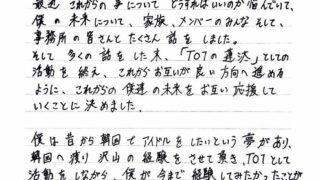 最近 これからの事について どうすればいいのか悩んでいて、
僕の未来について、家族、メンバーのみんな そして、
事務所の皆さんと たくさん 話を しました。
そして 多くの 話を した末、「TO1の 蓮汰」としての
活動を 終え、これからお互いが 良い方向へ 進める
ように、これからの 僕達の未来を お互い 応援して
いくことに 決めました。
僕は 昔から 韓国で アイドルを したいという 夢が あり、
韓国へ 渡り 沢山の 経験を させて 頂き、TO1として
活動を しながら、僕が 今まで 経験してみたかったことが